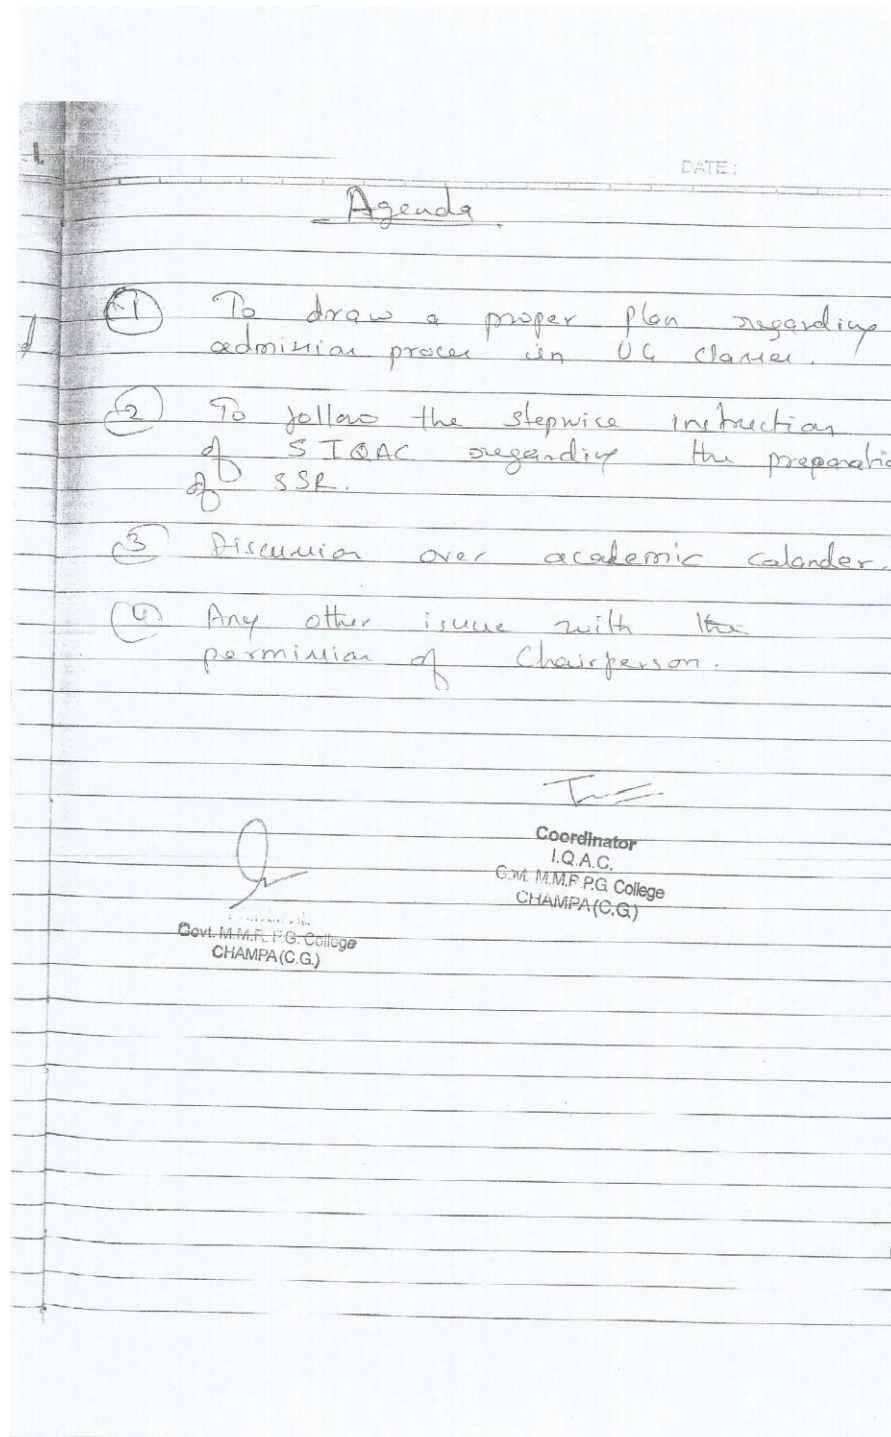 DATE :
Agenda
1 To draw a proper plan regarding
admission process in UG classes.
2 To follow the stepwise instruction
of SIQAC regarding the preparatio
of SSR.
3 Discussion over academic calander.
4 Any other issue with the
permission of Chairperson.
Coordinator
I.Q.A.C.
Govt. M.M.R. P.G. College
CHAMPA (C.G.)
Govt. M.M.R. P.G. College
CHAMPA (C.G.)